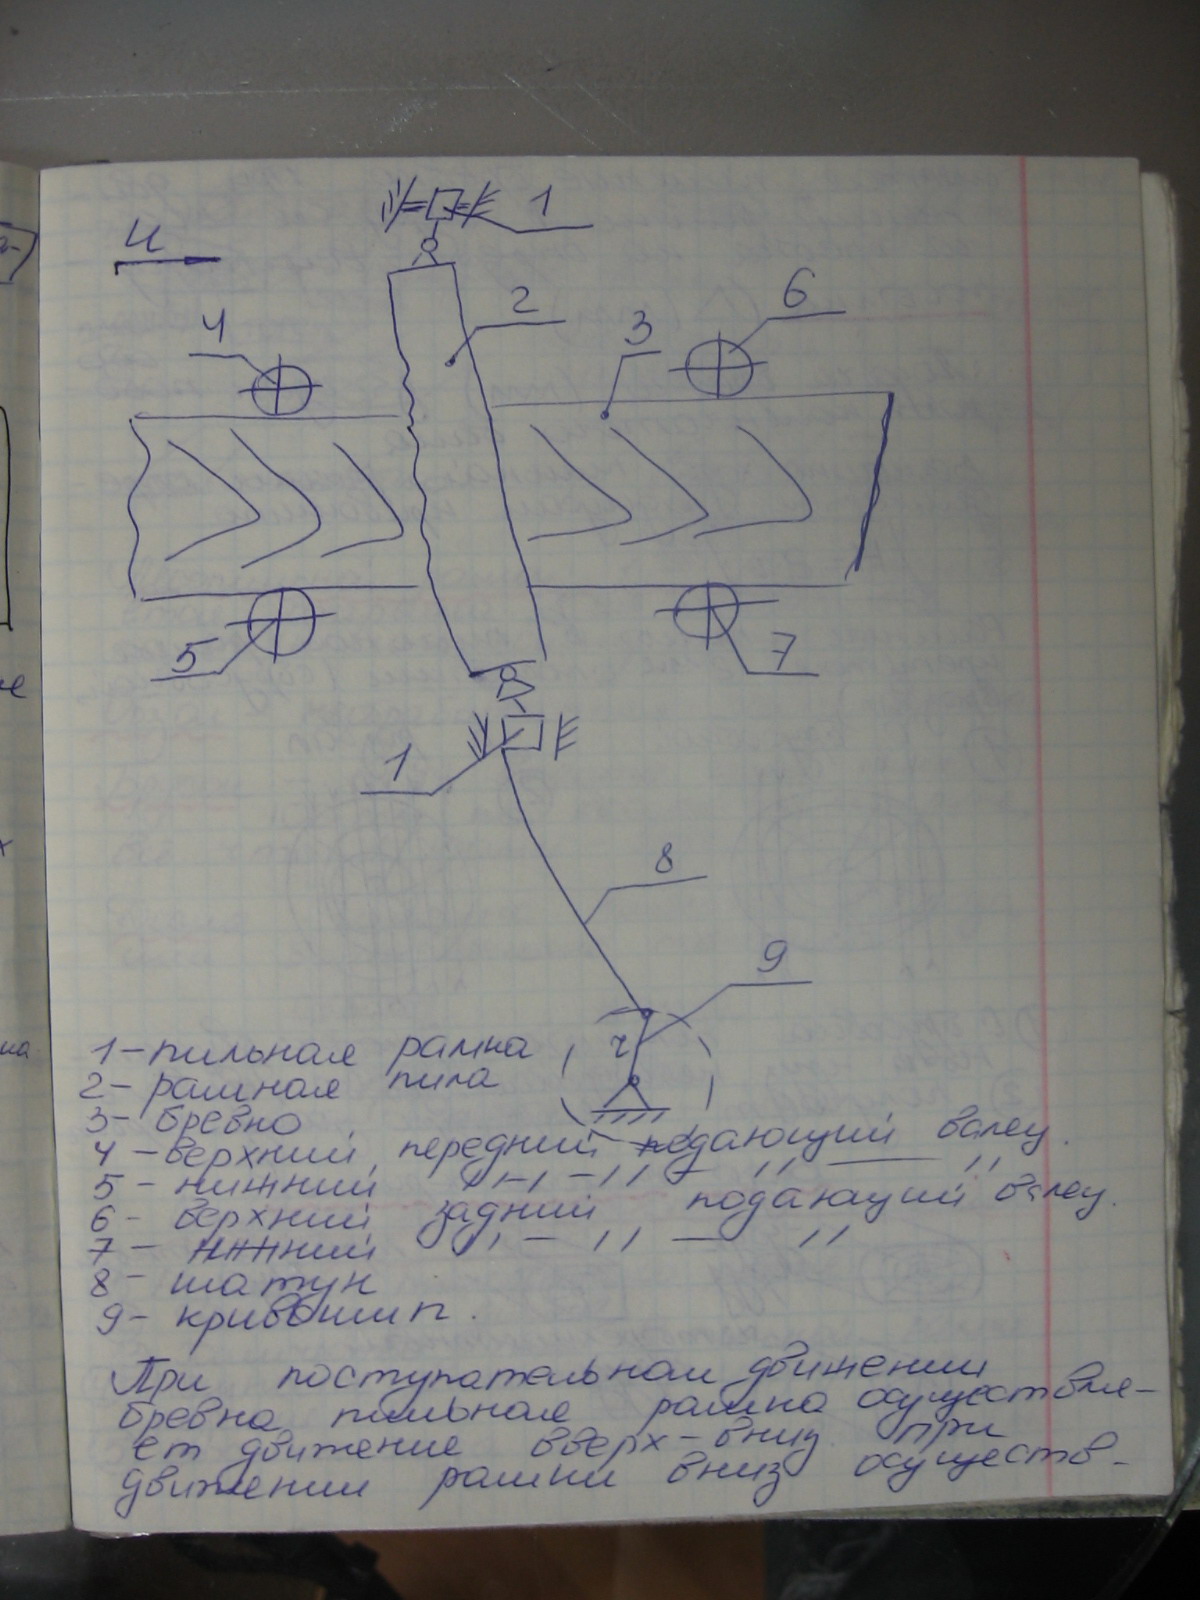 1
U
2
6
4
3
5
7
1
8
9
r
1 - пильная рамка
2 - рамная пила
3 - бревно
4 - верхний передний подающий валец.
5 - нижний -,,- -,,- ,, — ,,
6 - верхний задний подающий валец.
7 - нижний ,, - ,, — ,,
8 - шатун
9 - кривошип.
При поступательном движении
бревна пильная рамка осуществля-
ет движение вверх-вниз. при
движении рамки вниз осуществ-